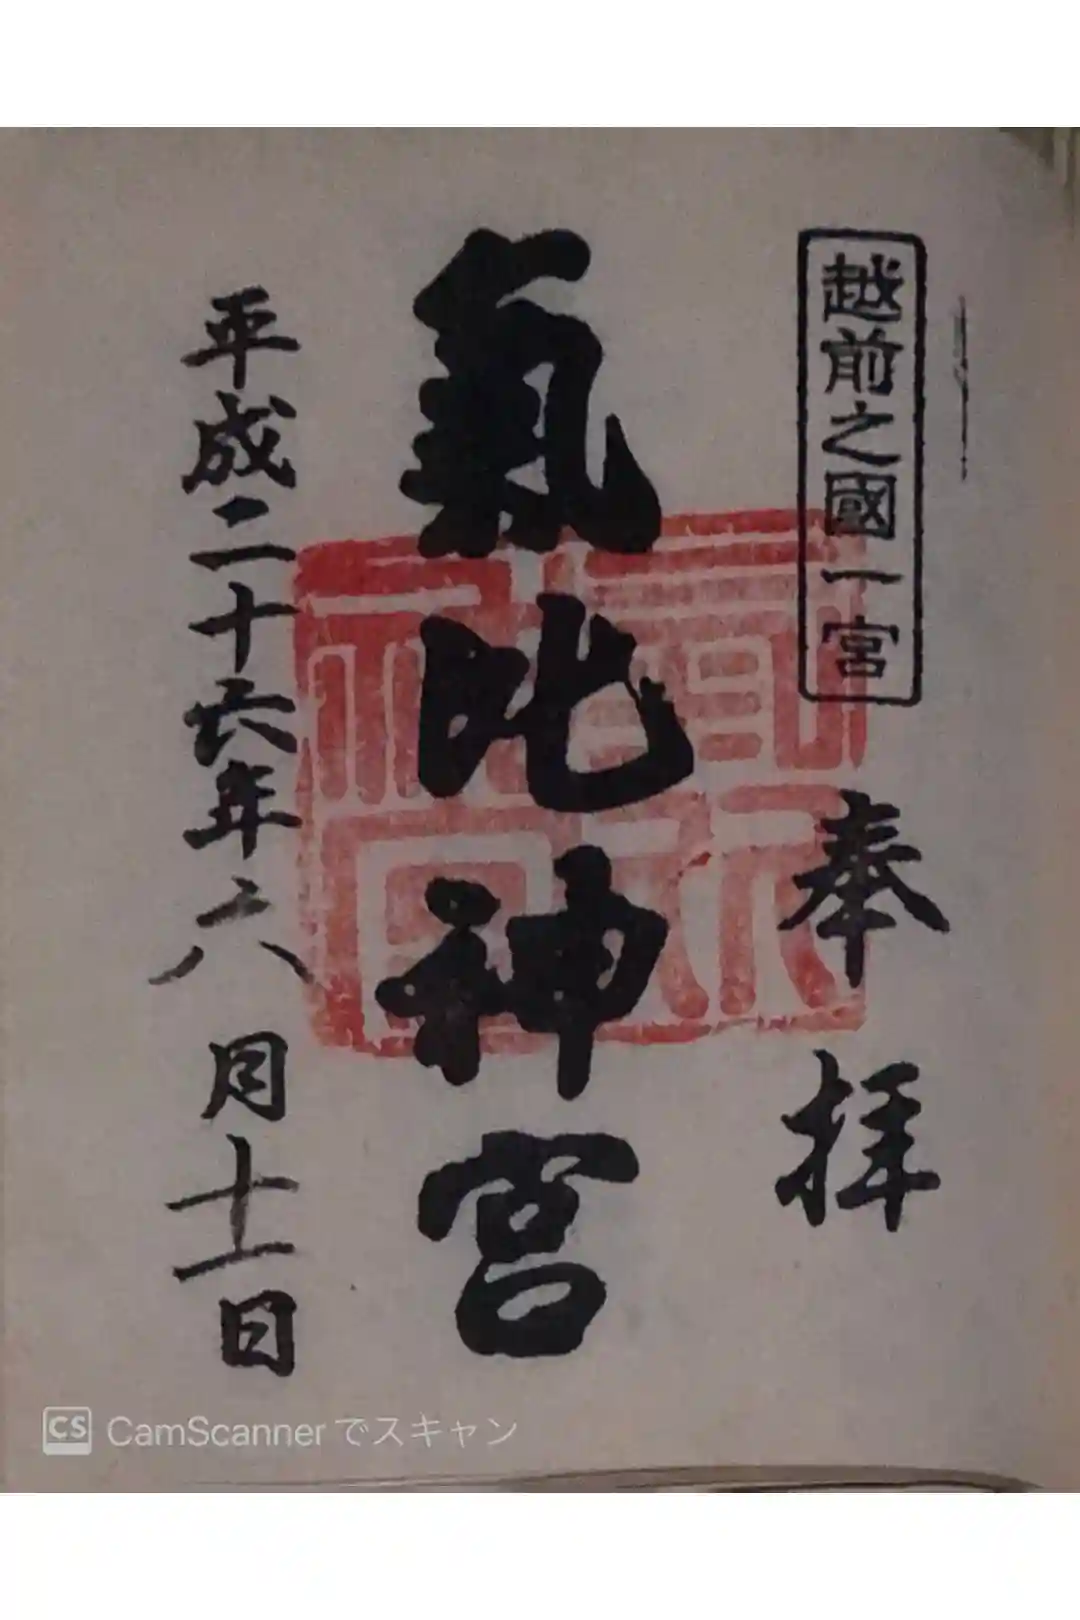 越前之國一宮
奉拝
氣比神宮
平成二十六年六月十一日
CS CamScannerでスキャン